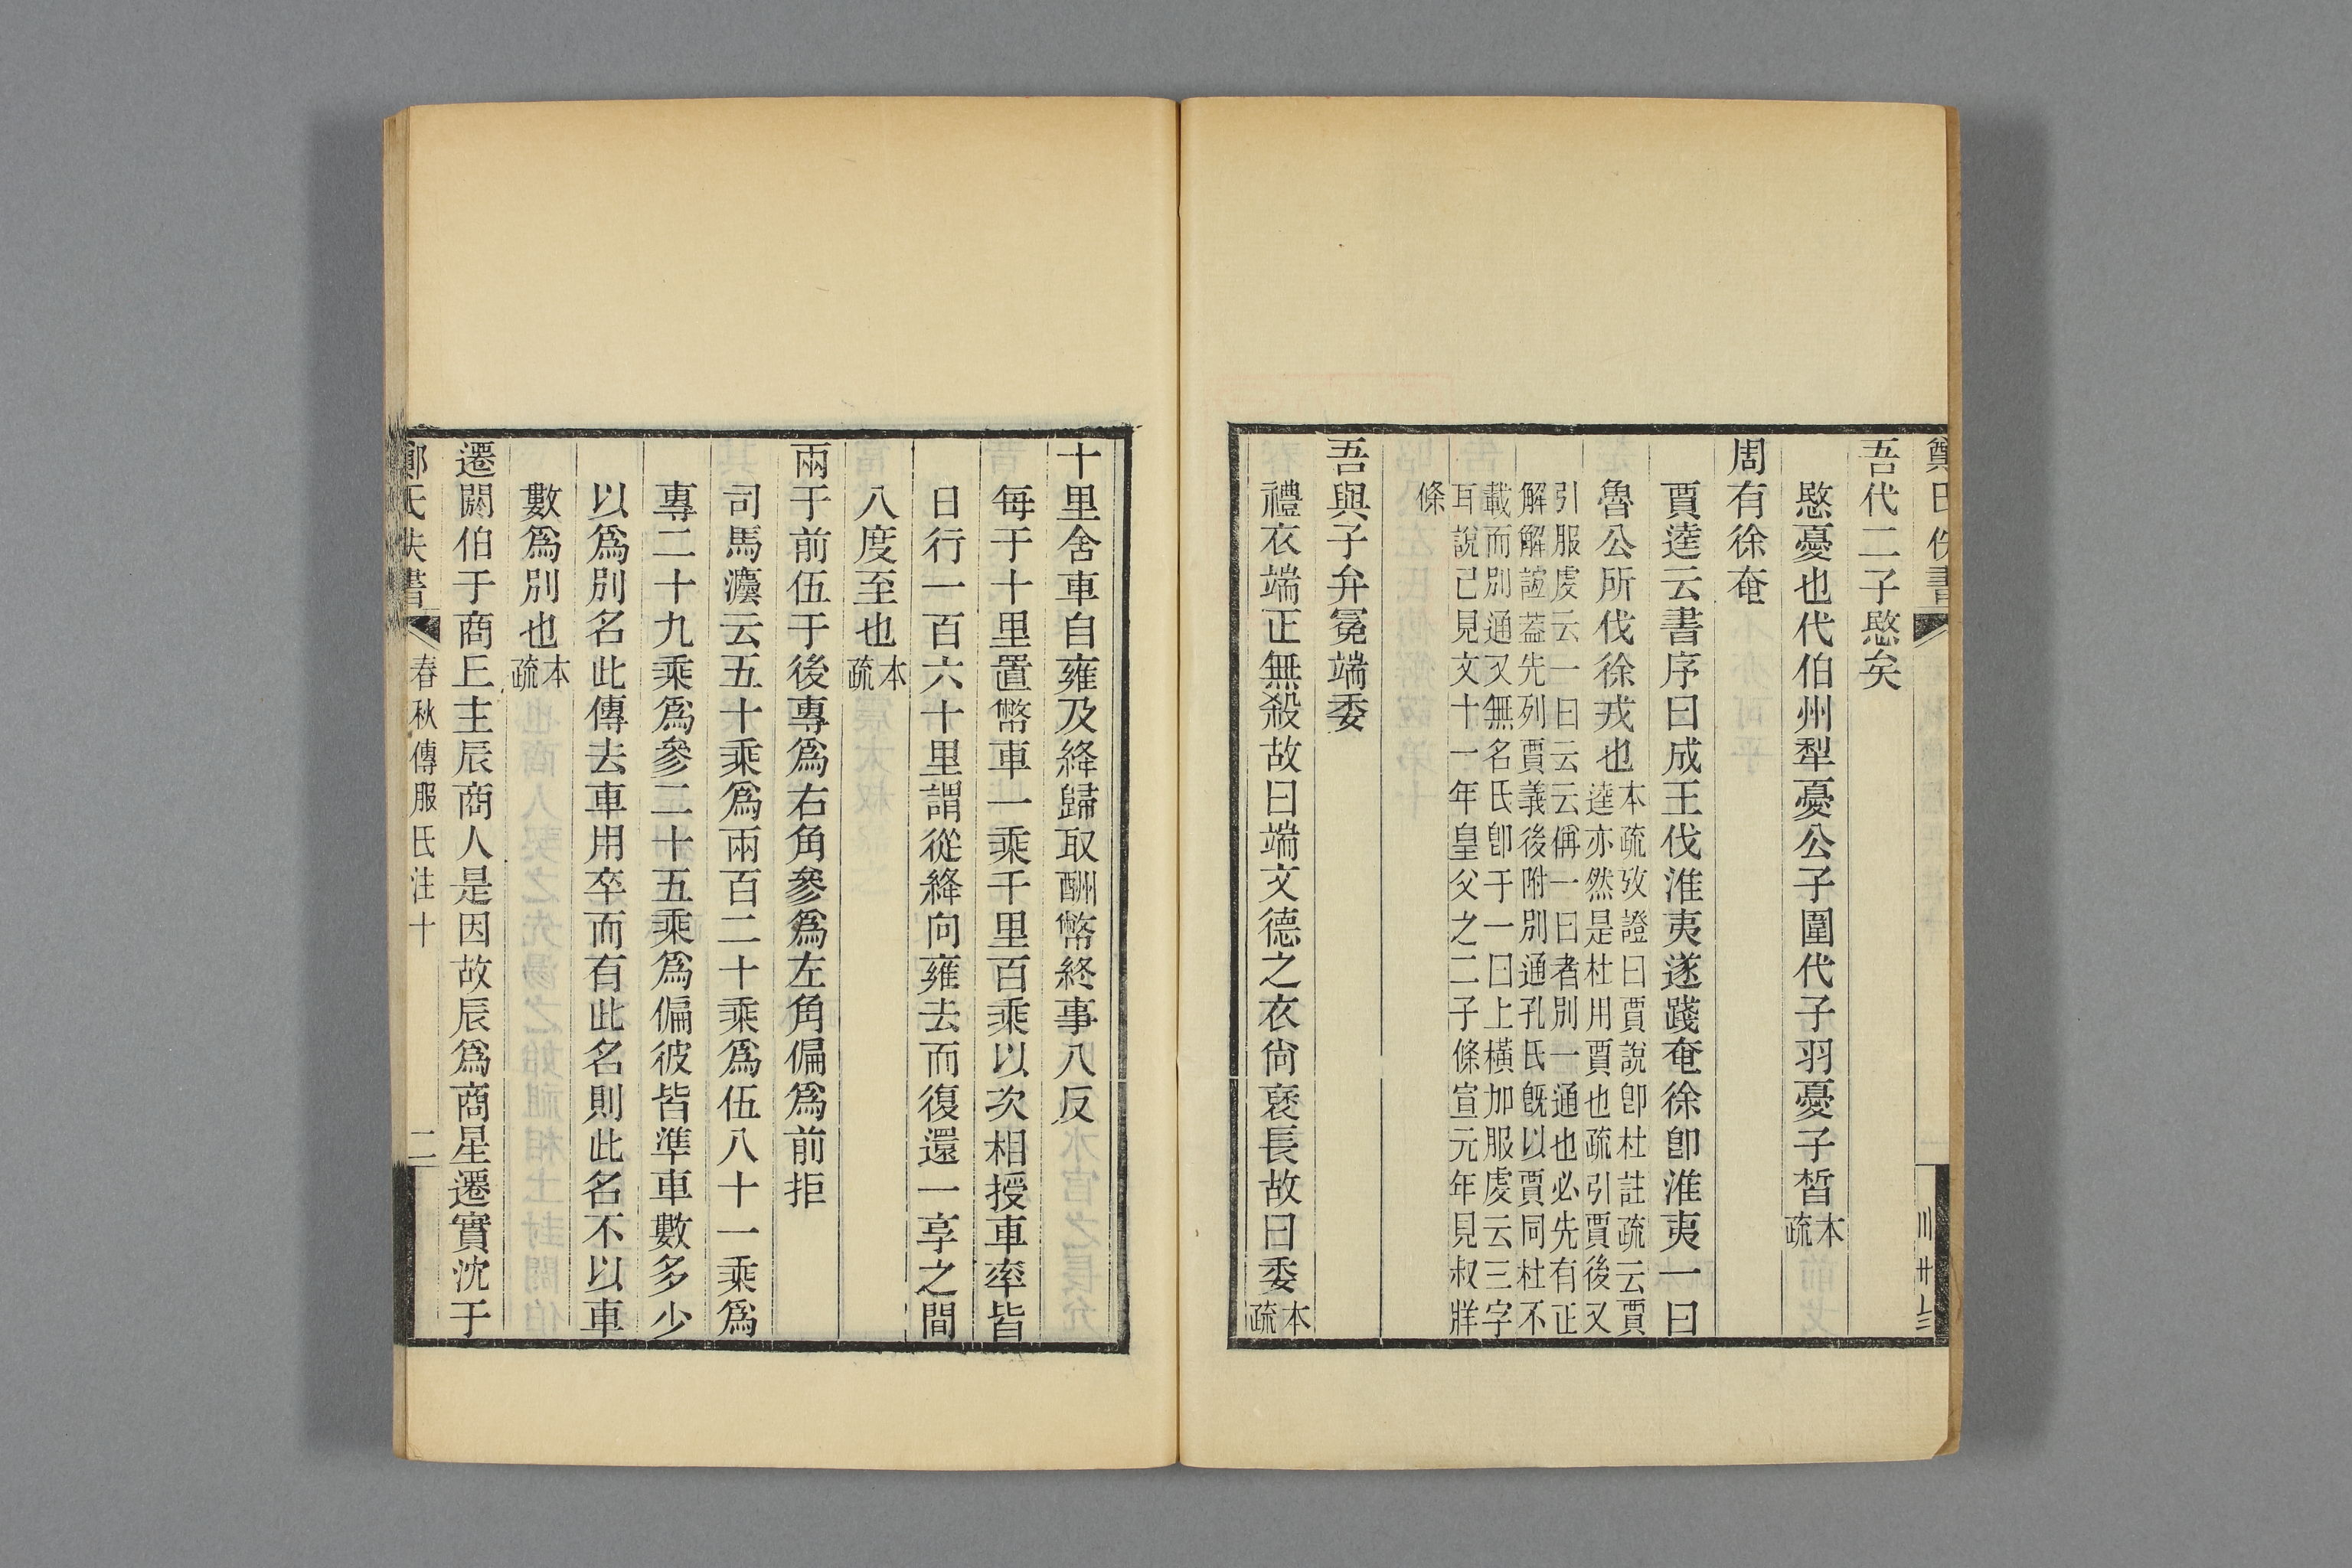 吾代二子愍矣
愍憂也代伯州犁憂公子圍代子羽憂子晳本疏
周有徐奄
賈逵云書序曰成王伐淮夷遂踐奄徐卽淮夷一曰
魯公所伐徐戎也本疏攷證曰賈說卽杜註疏云賈
逵亦然是杜用賈也疏引賈後又
引服虔云一曰云云稱一曰者別一通也必先有正
解解誼葢先列賈義後附別通孔氏旣以賈同杜不
載而別通又無名氏卽于一曰上橫加服虔云三字
耳說已見文十一年皇父之二子條宣元年見叔牂
條
吾與子弁冕端委
禮衣端正無殺故曰端文德之衣尙褎長故曰委本疏
十里舍車自雍及絳歸取酬幣終事八反
每于十里置幣車一乘千里百乘以次相授車率皆
日行一百六十里謂從絳向雍去而復還一享之間
八度至也本疏
兩于前伍于後專爲右角參爲左角偏爲前拒
司馬灋云五十乘爲兩百二十乘爲伍八十一乘爲
專二十九乘爲參二十五乘爲偏彼皆準車數多少
以爲別名此傳去車用卒而有此名則此名不以車
數爲別也本疏
遷閼伯于商丘主辰商人是因故辰爲商星遷實沈于
鄭氏佚書
春秋傳服氏注十
二